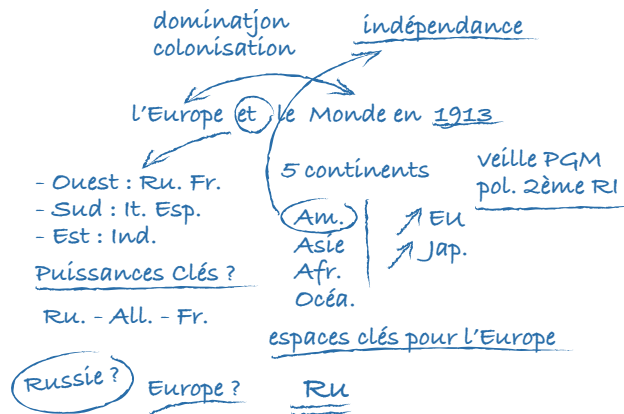 domination
colonisation
indépendance
l'Europe et le Monde en 1913
- Ouest : Ru. Fr.
- Sud : It. Esp.
- Est : Ind.
Puissances Clés ?
Ru. - All. - Fr.
5 continents
Am.
Asie
Afr.
Océa.
EU
Jap.
veille PGM
pol. 2ème RI
espaces clés pour l'Europe
Russie ?
Europe ?
Ru